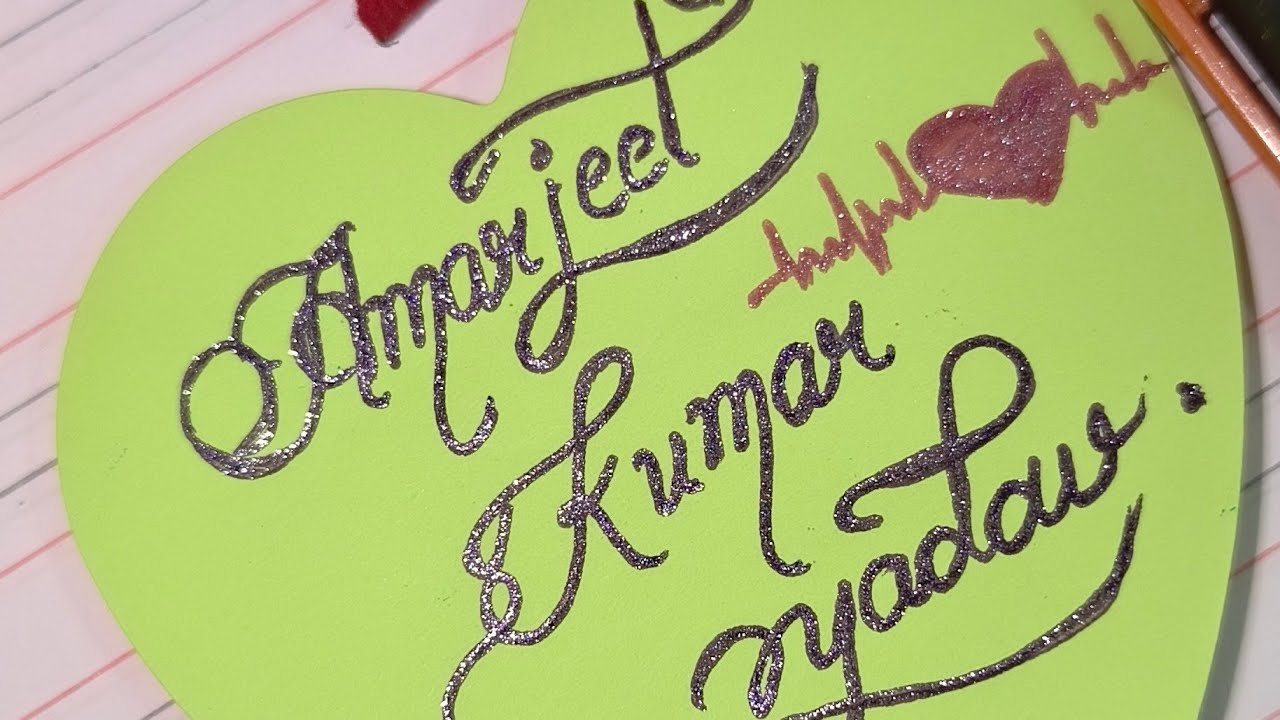 Amarjeet
Kumar
yadav.